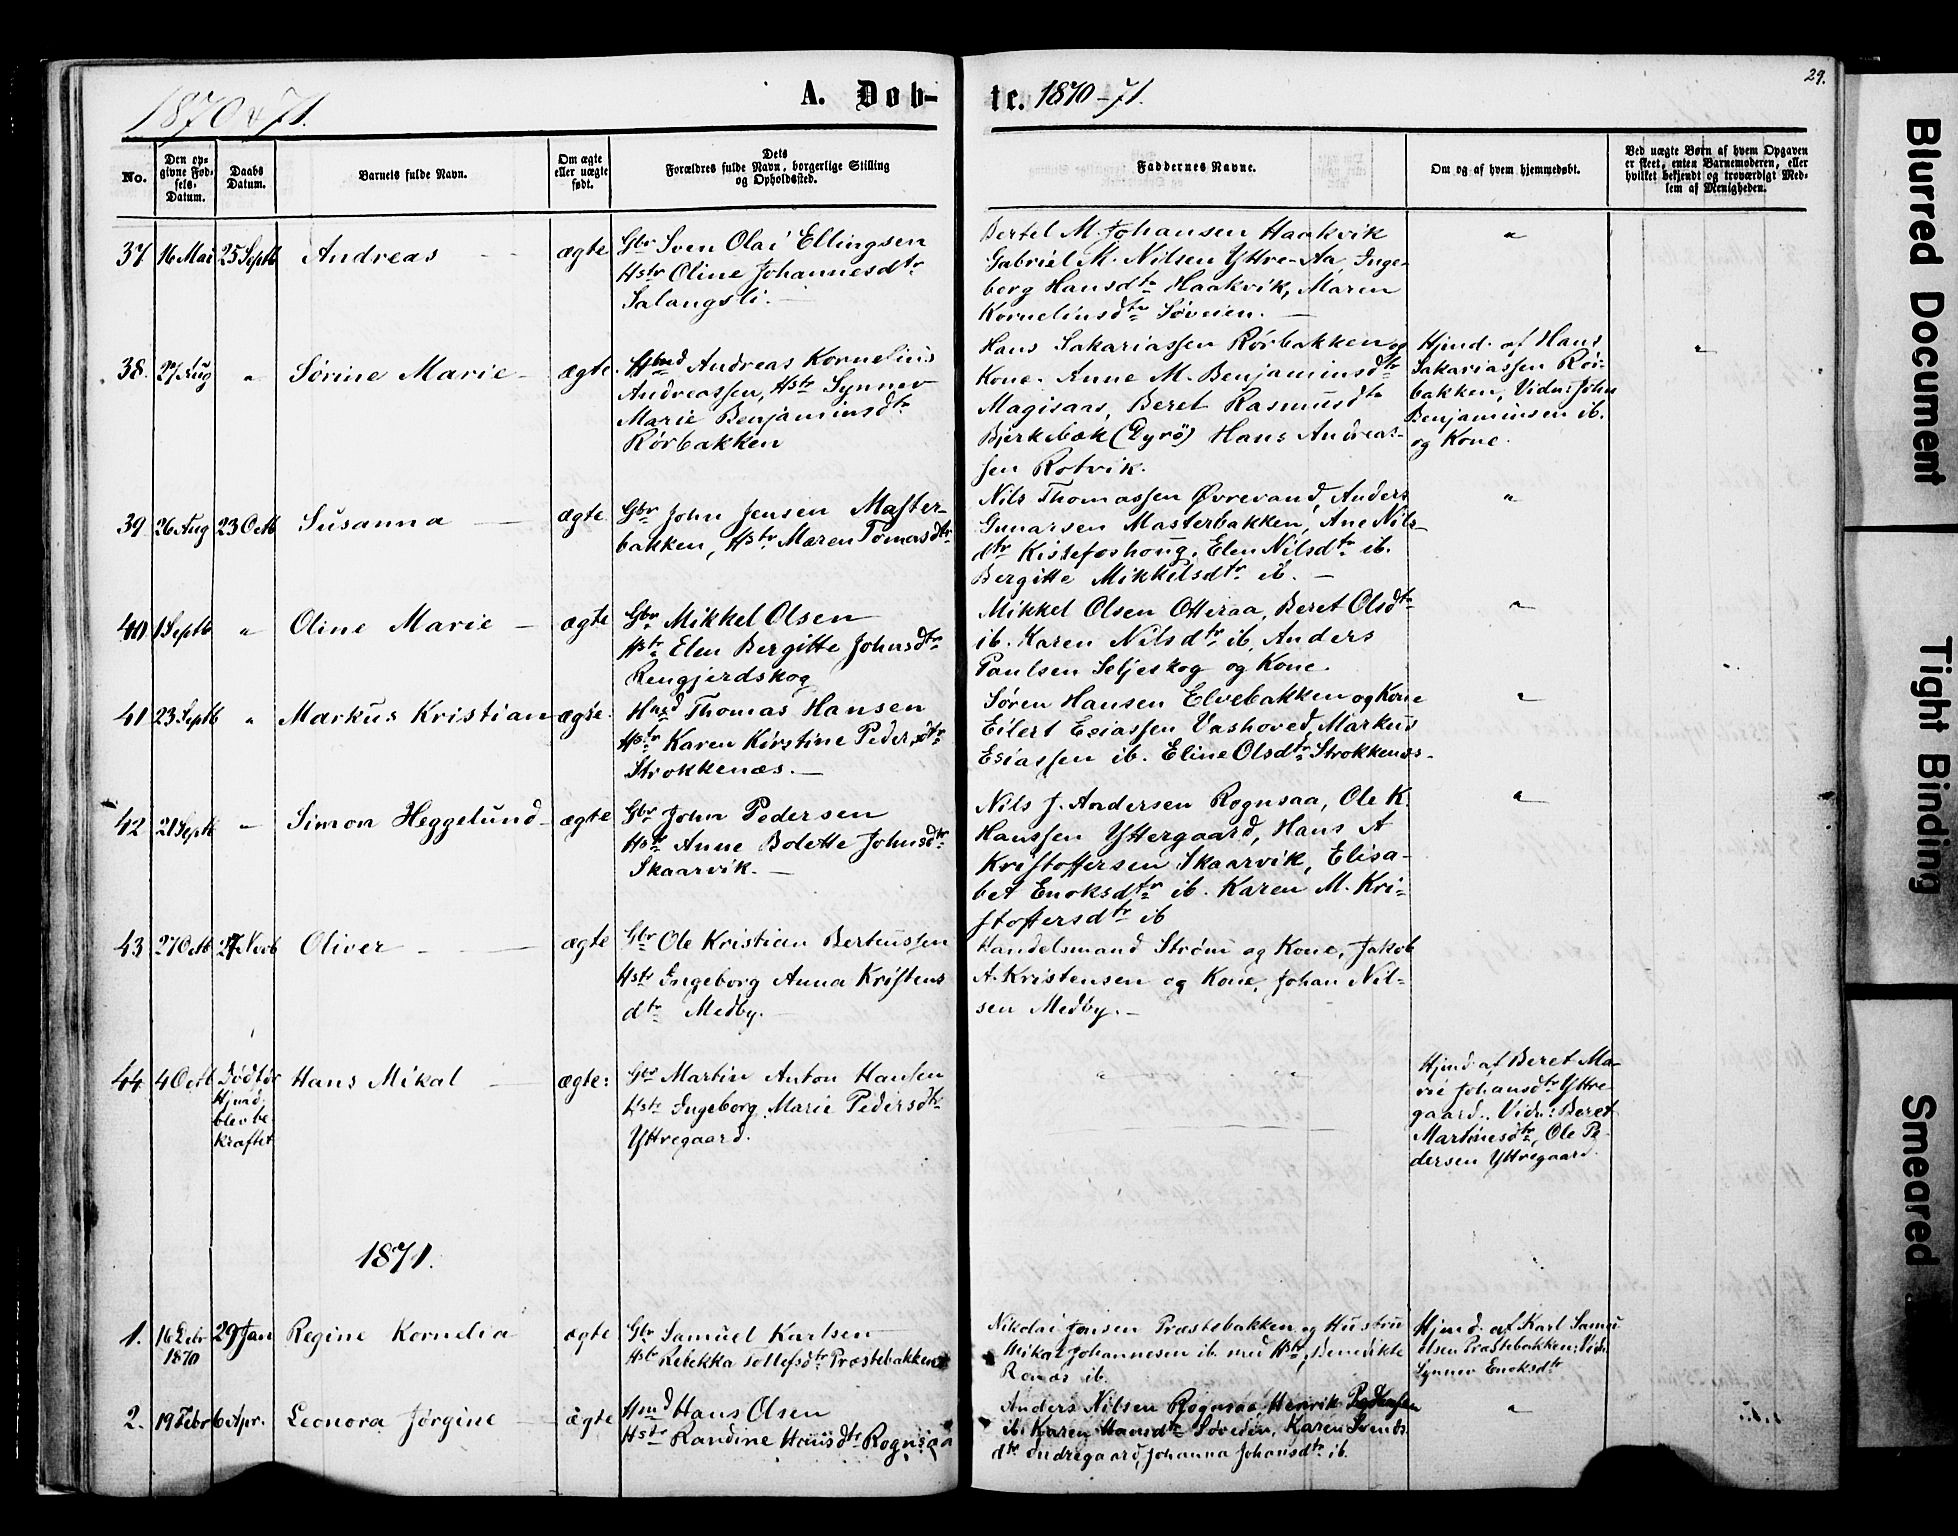 1870 & 71.
A. Døb-
te. 1870-71.
29.
No.
Den op-
givne Fød-
sels-
Datum.
Daabs
Datum.
Barnets fulde Navn.
Om ægte
eller uægte
født.
Dets
Forældres fulde Navn, borgerlige Stilling
og Opholdssted.
Faddernes Navne.
Om og af hvem hjemmedøbt.
Ved uægte Børn af hvem Opgaven
er skeet, enten Barnemoderen, eller
hvilket bekjendt og troværdigt Med-
lem af Menigheden.
37 16 Mai 25 Septb Andreas - ægte
Gbr Sven Olai Ellingsen
Hstr Oline Johannesdtr
Salangsli. -
Bertel M. Johansen Haakvik
Gabriel M. Nilsen Yttre-Aa, Inge-
borg Hansdtr Haakvik, Maren
Korneliusdtr Søveien. -
"
38. 27 Aug " Sørine Marie - ægte.
Hbmd Andreas Kornelius
Andreassen, Hstr Synnev
Marie Benjaminsdtr
Rørbakken
Hans Sakariassen Rørbakken og
Kone. Anne M. Benjaminsdtr
Beret Rasmusdtr
Bjerkebæk (Dyrö) Hans Andreas-
sen Rotvik.
Hjmd. af Hans
Sakariassen Rör-
bakken, Vidn: John
Benjaminsen ib.
og Kone.
"
39. 26 Aug 23 Octb Susanna - ægte.
Gbr John Jensen Master-
bakken, Hstr Maren Tomasdtr
Nils Thomassen Øvrevand, Anders
Gunarsen Masterbakken, Ane Nils-
dtr Kistefoshoug, Elen Nilsdtr ib.
Bergitte Mikkelsdtr ib. -
"
40 1 Septb " Oline Marie - ægte
Gbr Mikkel Olsen
Hstr Elen Bergitte Johnsdtr
Rengjerdskog
Mikkel Olsen Otteraa, Beret Olsdtr
ib. Karen Nilsdtr ib, Anders
Paulsen Seljeskog og Kone.
"
41 23 Septb " Markus Kristian ægte.
Hmd Thomas Hansen
Hstr Karen Kirstine Pedersdtr
Strokkenæs. -
Søren Hansen Elvebakken og Kone
Eilert Esiassen Vashoved, Markus
Esiassen ib. Eline Olsdtr Strokkenæs.
"
42 21 Septb " Simon Heggelund - ægte
Gbr John Pedersen
Hstr Anne Bolette Johnsdtr
Skaarvik. -
Nils J. Andersen Rognsaa, Ole K.
Hanssen Yttergaard, Hans A
Kristoffersen Skaarvik, Elisa-
bet Enoksdtr ib. Karen M. Kri-
stoffersdtr ib
"
43 27 Octb 27 Novb Oliver - - ægte
Gbr Ole Kristian Berthussen
Hstr Ingeborg Anna Kristens
dtr Medby. -
Handelsmand Strøm og Kone, Jakob
A. Kristensen og Kone, Johan Nil-
sen Medby. -
44 4 Octb Død før
Hjmd.
blev be-
kræftet
Hans Mikal - ægte:
Gbr Martin Anton Hansen
Hstr Ingeborg Marie Pedersdtr
Yttregaard.
" " "
Hjmd. af Beret Ma-
rie Johansdtr Yttre-
gaard. Vidn: Beret
Martinesdtr, Ole Pe-
dersen Yttregaard.
1871.
1. 16 Debr
1870
29 Jan Regine Kornelia ægte
Gbr Samuel Karlsen
Hstr Rebekka Tollefsdtr Præstebakken
Nikolai Jensen Præstebakken og Hustru
Mikal Johannesen ib. med Hstr, Benedikte
ib.
Hjmd. af Karl Samu-
elsen Præstebakken. Vidn:
Synnev Enoksdtr
2. 19 Febr 6 Apr. Leonora Jørgine - ægte
Hmd Hans Olsen
Hstr Randine Hansdtr Rognsaa
Anders Nilsen Rognsaa, Henrik Pedersen
ib. Karen Hansdtr Søveien, Karen Svends
dtr Indregaard, Johanna Johansdtr ib.
"
Blurred Document
Tight Binding
Smeared